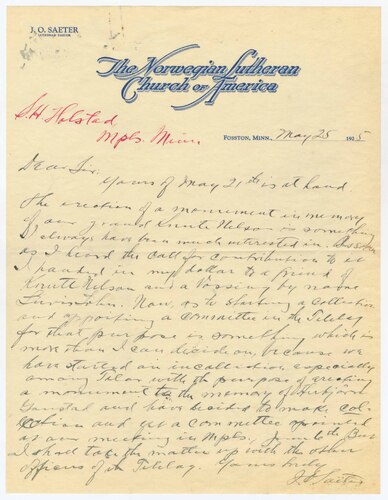 J. O. SAETER
LUTHERAN PASTOR
The Norwegian Lutheran
Church of America
S. H. Holstad
Mpls. Minn.
FOSSTON, MINN., May 25 1925
Dear Sir:
Yours of May 21th is at hand.
The erection of a monument in memory
of our grand Knute Nelson is something
I always have been much interested in.
as I heard the call for contribution to it
I handed in my dollar to a friend of
Knute Nelson and a Vossing by name
Now, as to starting a collection
and appointing a committee in the Telelag
for that purpose is something which is
more than I can decide on, because we
have started an incollection especially
among Teler with the purpose of erecting
a monument to the memory of
and have decided to make col-
lection and get a committee appointed
at our meeting in Mpls. June
I shall take the matter up with the other
officers of the Telelag. Yours truly
J. O. Saeter